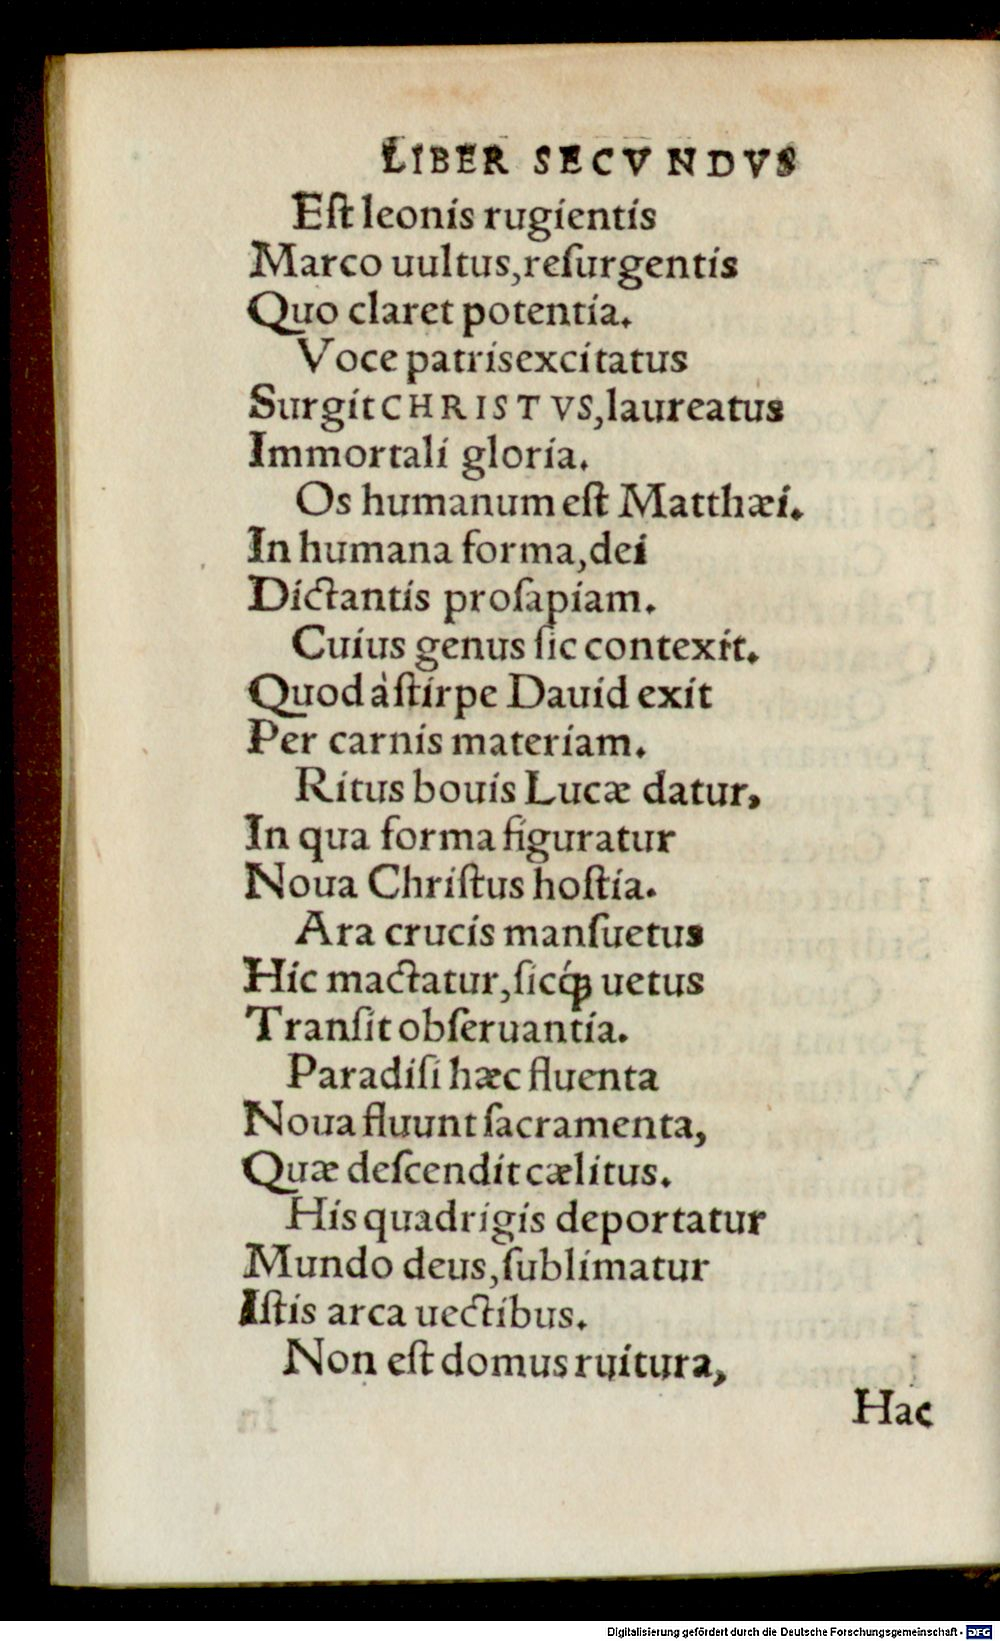 LIBER SECVNDVS
Eſt leonis rugientis
Marco uultus, reſurgentis
Quo claret potentia.
Voce patris excitatus
Surgit CHRISTVS, laureatus
Immortali gloria.
Os humanum eſt Matthæi.
In humana forma, dei
Dictantis proſapiam.
Cuius genus ſic contexit.
Quod à ſtirpe Dauid exit
Per carnis materiam.
Ritus bouis Lucæ datur,
In qua forma figuratur
Noua Chriſtus hoſtia.
Ara crucis manſuetus
Hic mactatur, ſicq́ꝫ uetus
Tranſit obſeruantia.
Paradiſi hæc fluenta
Noua fluunt ſacramenta,
Quæ deſcendit cælitus.
His quadrigis deportatur
Mundo deus, ſublimatur
Iſtis arca uectibus.
Non eſt domus ruitura,
Hac
Digitalisierung gefördert durch die Deutsche Forschungsgemeinschaft - DFG